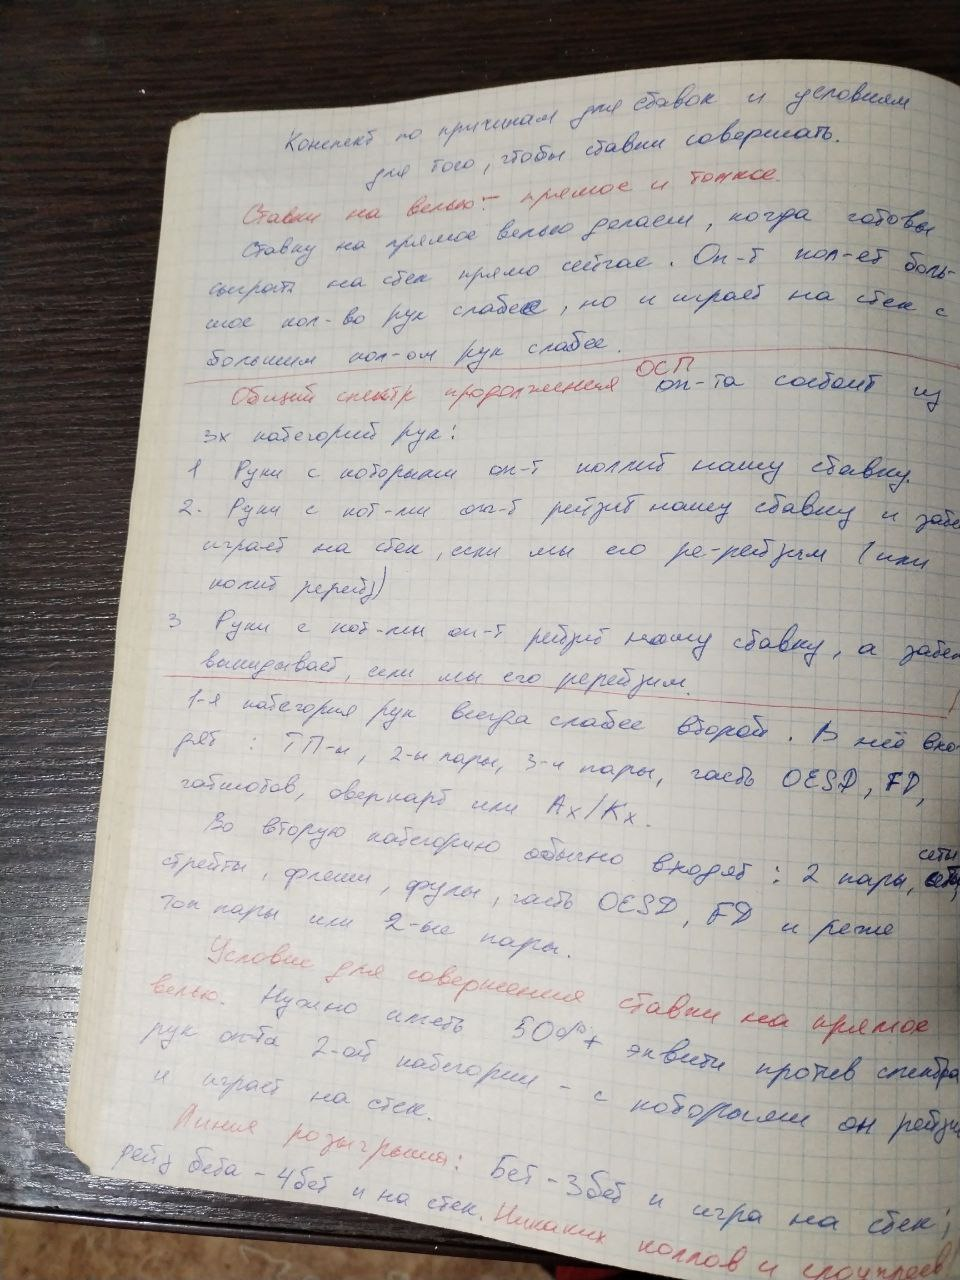 Конспект по причинам для ставок и условиям
для того, чтобы ставки совершать.
Ставки на велью - прямое и тонкое.
Ставку на прямое велью делаем, когда готовы
сыграть на стек прямо сейчас. Оп-т кол-ет боль-
шое кол-во рук слабее, но и играет на стек с
большим кол-ом рук слабее.
Общий спектр продолжения ОСП оп-та состоит из
3х категорий рук:
1 Руки с которыми оп-т коллит нашу ставку.
2. Руки с кот-ми оп-т рейзит нашу ставку и зате
играет на стек, если мы его ре-рейзим (или
колит ререйз)
3 Руки с кот-ми оп-т рейзит нашу ставку, а затем
выкидывает, если мы его ререйзим.
1-я категория рук всегда слабее второй. В неё вхо-
дят: ТП-и, 2-и пары, 3-и пары, часть OESD, FD,
гатшотов, оверкарт или Ax/Kx.
Во вторую категорию обычно входят: 2 пары, сеты
стрейты, флеши, фулы, часть OESD, FD и реже
топ пары или 2-ые пары.
Условие для совершения ставки на прямое
велью. Нужно иметь 50%+ эквити против спектра
рук оп-та 2-ой категории - с которыми он рейзит
и играет на стек.
Линия розыгрыша: Бет - 3бет и игра на стек;
рейз бета - 4бет и на стек. Никаких коллов и слоуплеев